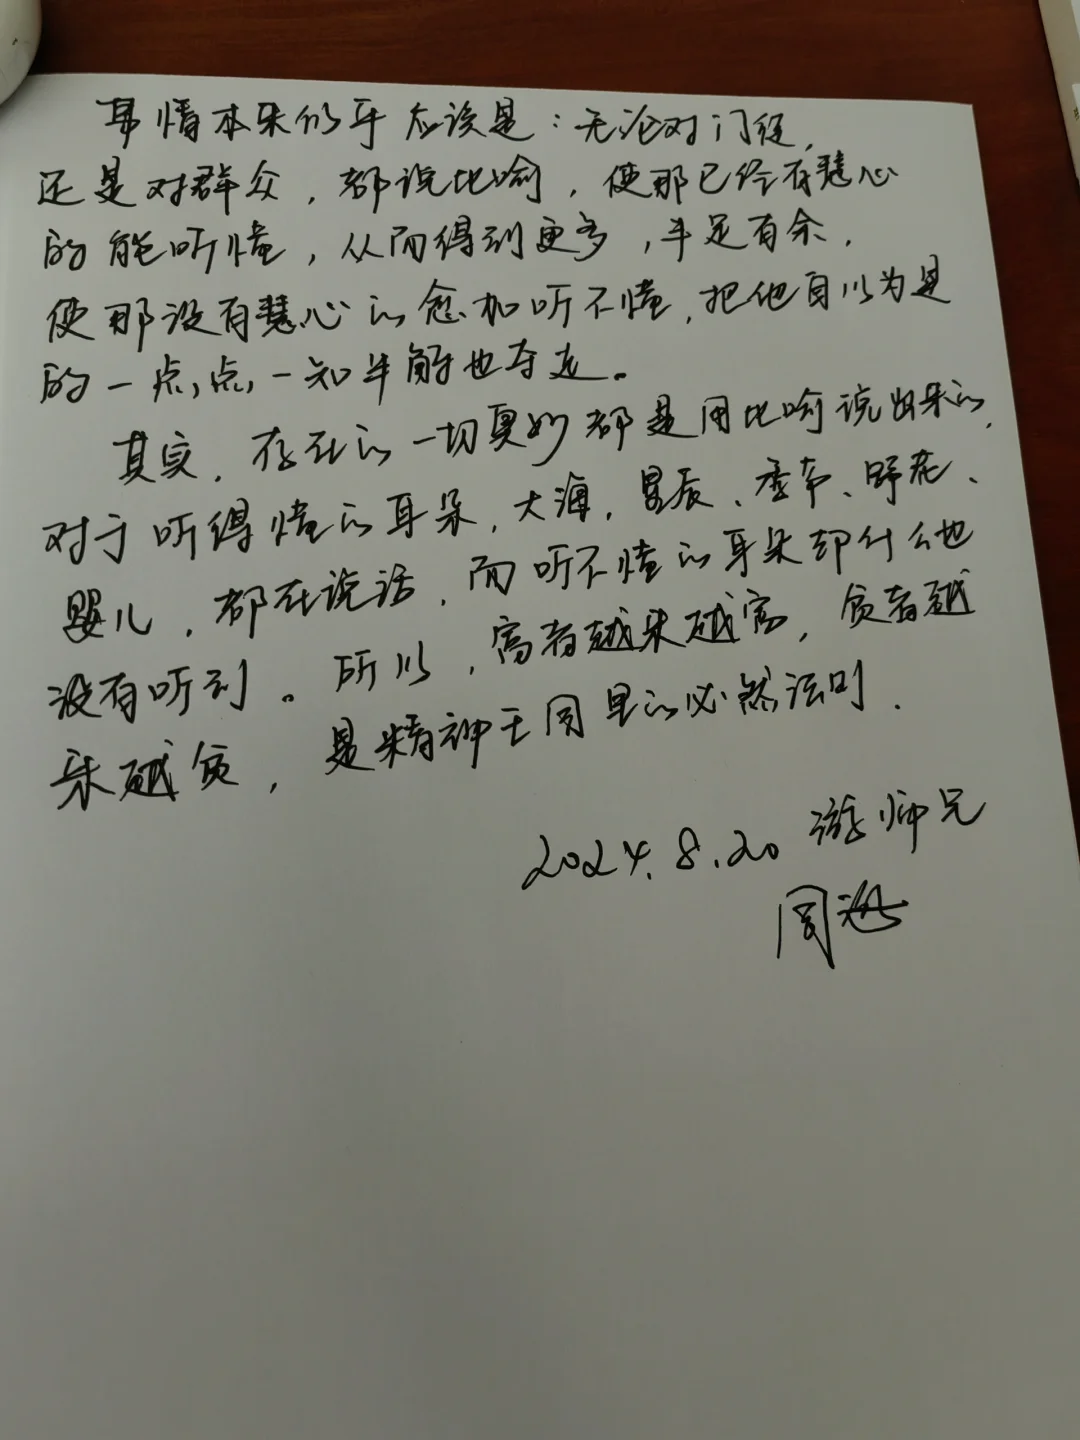 事情本来似乎应该是：无论对门徒，
还是对群众，都说比喻，使那已经有慧心
的能听懂，从而得到更多，丰足有余，
使那没有慧心的愈加听不懂，把他自以为是
的一点点一知半解也夺走。
其实，存在的一切奥妙都是用比喻说出来的，
对于听得懂的耳朵，大海，星辰、季节、野花、
婴儿，都在说话，而听不懂的耳朵却什么也
没有听到。所以，富者越来越富，贫者越
来越贫，是精神王国里的必然法则．
2024.8.20 游师兄